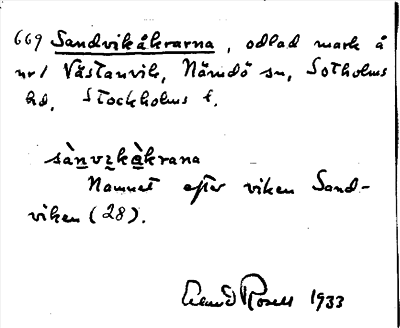 669 Sandvikåkrarna, odlad mark å
nr 1 Västanvik, Nämdö sn, Sotholms
hd, Stockholms l.
sànvɪkàkrana
Namnet efter viken Sand-
viken (28).
Rosell 1933